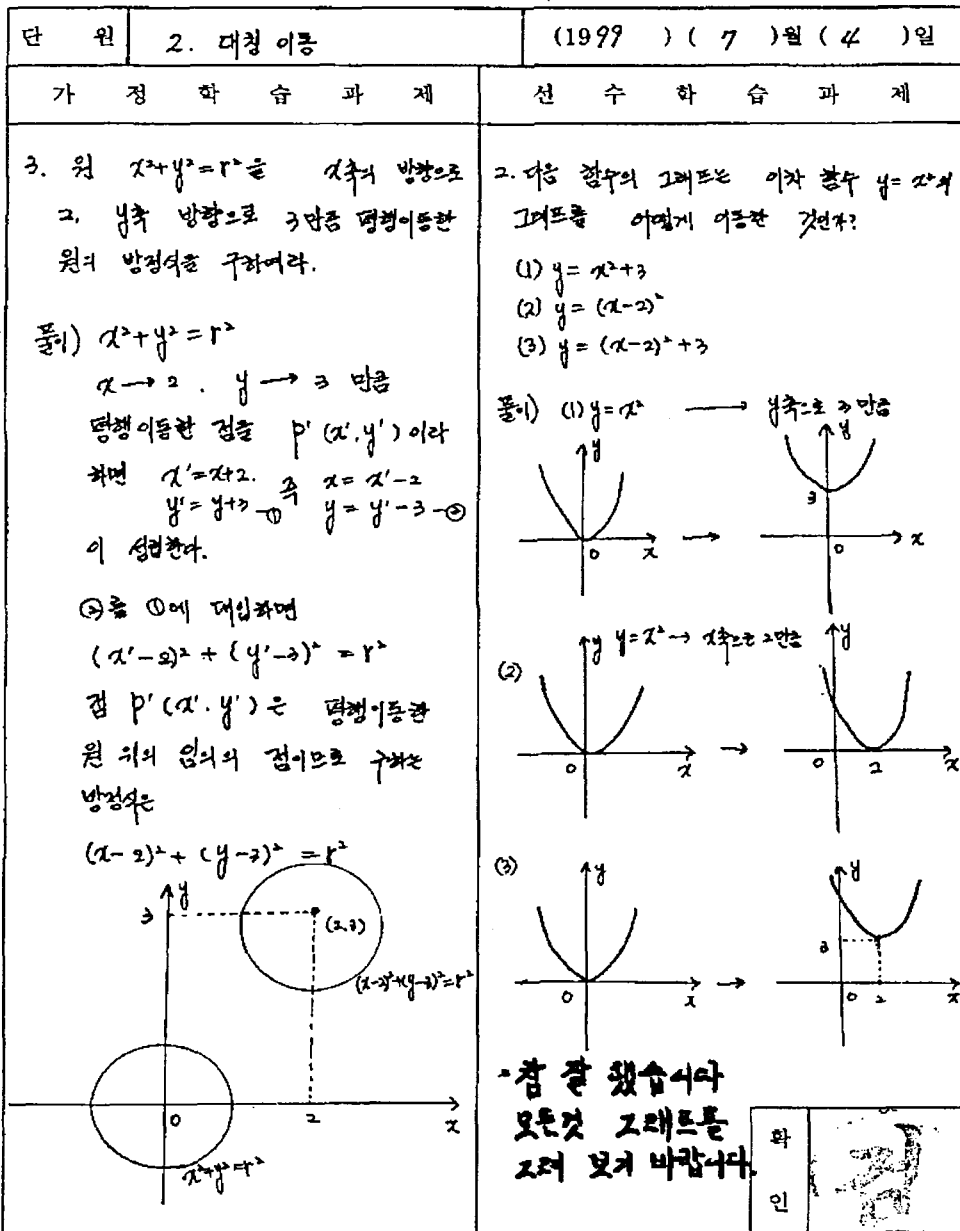 단 원 2. 대칭 이동 (1999 ) ( 7 )월 ( 4 )일
가 정 학 습 과 제
3. 원 x²+y²=r²을 x축의 방향으로
2, y축 방향으로 3만큼 평행이동한
원의 방정식을 구하여라.
풀이) x²+y²=r²
x→2. y→3 만큼
평행이동한 점을 p'(x', y')이라
하면 x'=x+2. 즉 x=x'-2
y'=y+3-① y=y'-3-②
이 성립한다.
②를 ①에 대입하면
(x'-2)²+(y'-3)²=r²
점 p'(x'. y')은 평행이동한
원 위의 임의의 점이므로 구하는
방정식은
(x-2)²+(y-3)²=r²
y
3
(2,3)
(x-2)²+(y-3)²=r²
0 2 x
x²+y²=r²
선 수 학 습 과 제
2. 다음 함수의 그래프는 이차 함수 y=x²의
그래프를 어떻게 이동한 것인가?
(1) y=x²+3
(2) y=(x-2)²
(3) y=(x-2)²+3
풀이) (1) y=x² → y축으로 3만큼
y y
3
0 x → 0 x
(2) y y=x²→ x축으로 2만큼 y
0 x → 0 2 x
(3) y y
3
0 x → 0 2 x
참 잘 했습니다
모든것 그래프를
그려 보기 바랍니다.
확
인